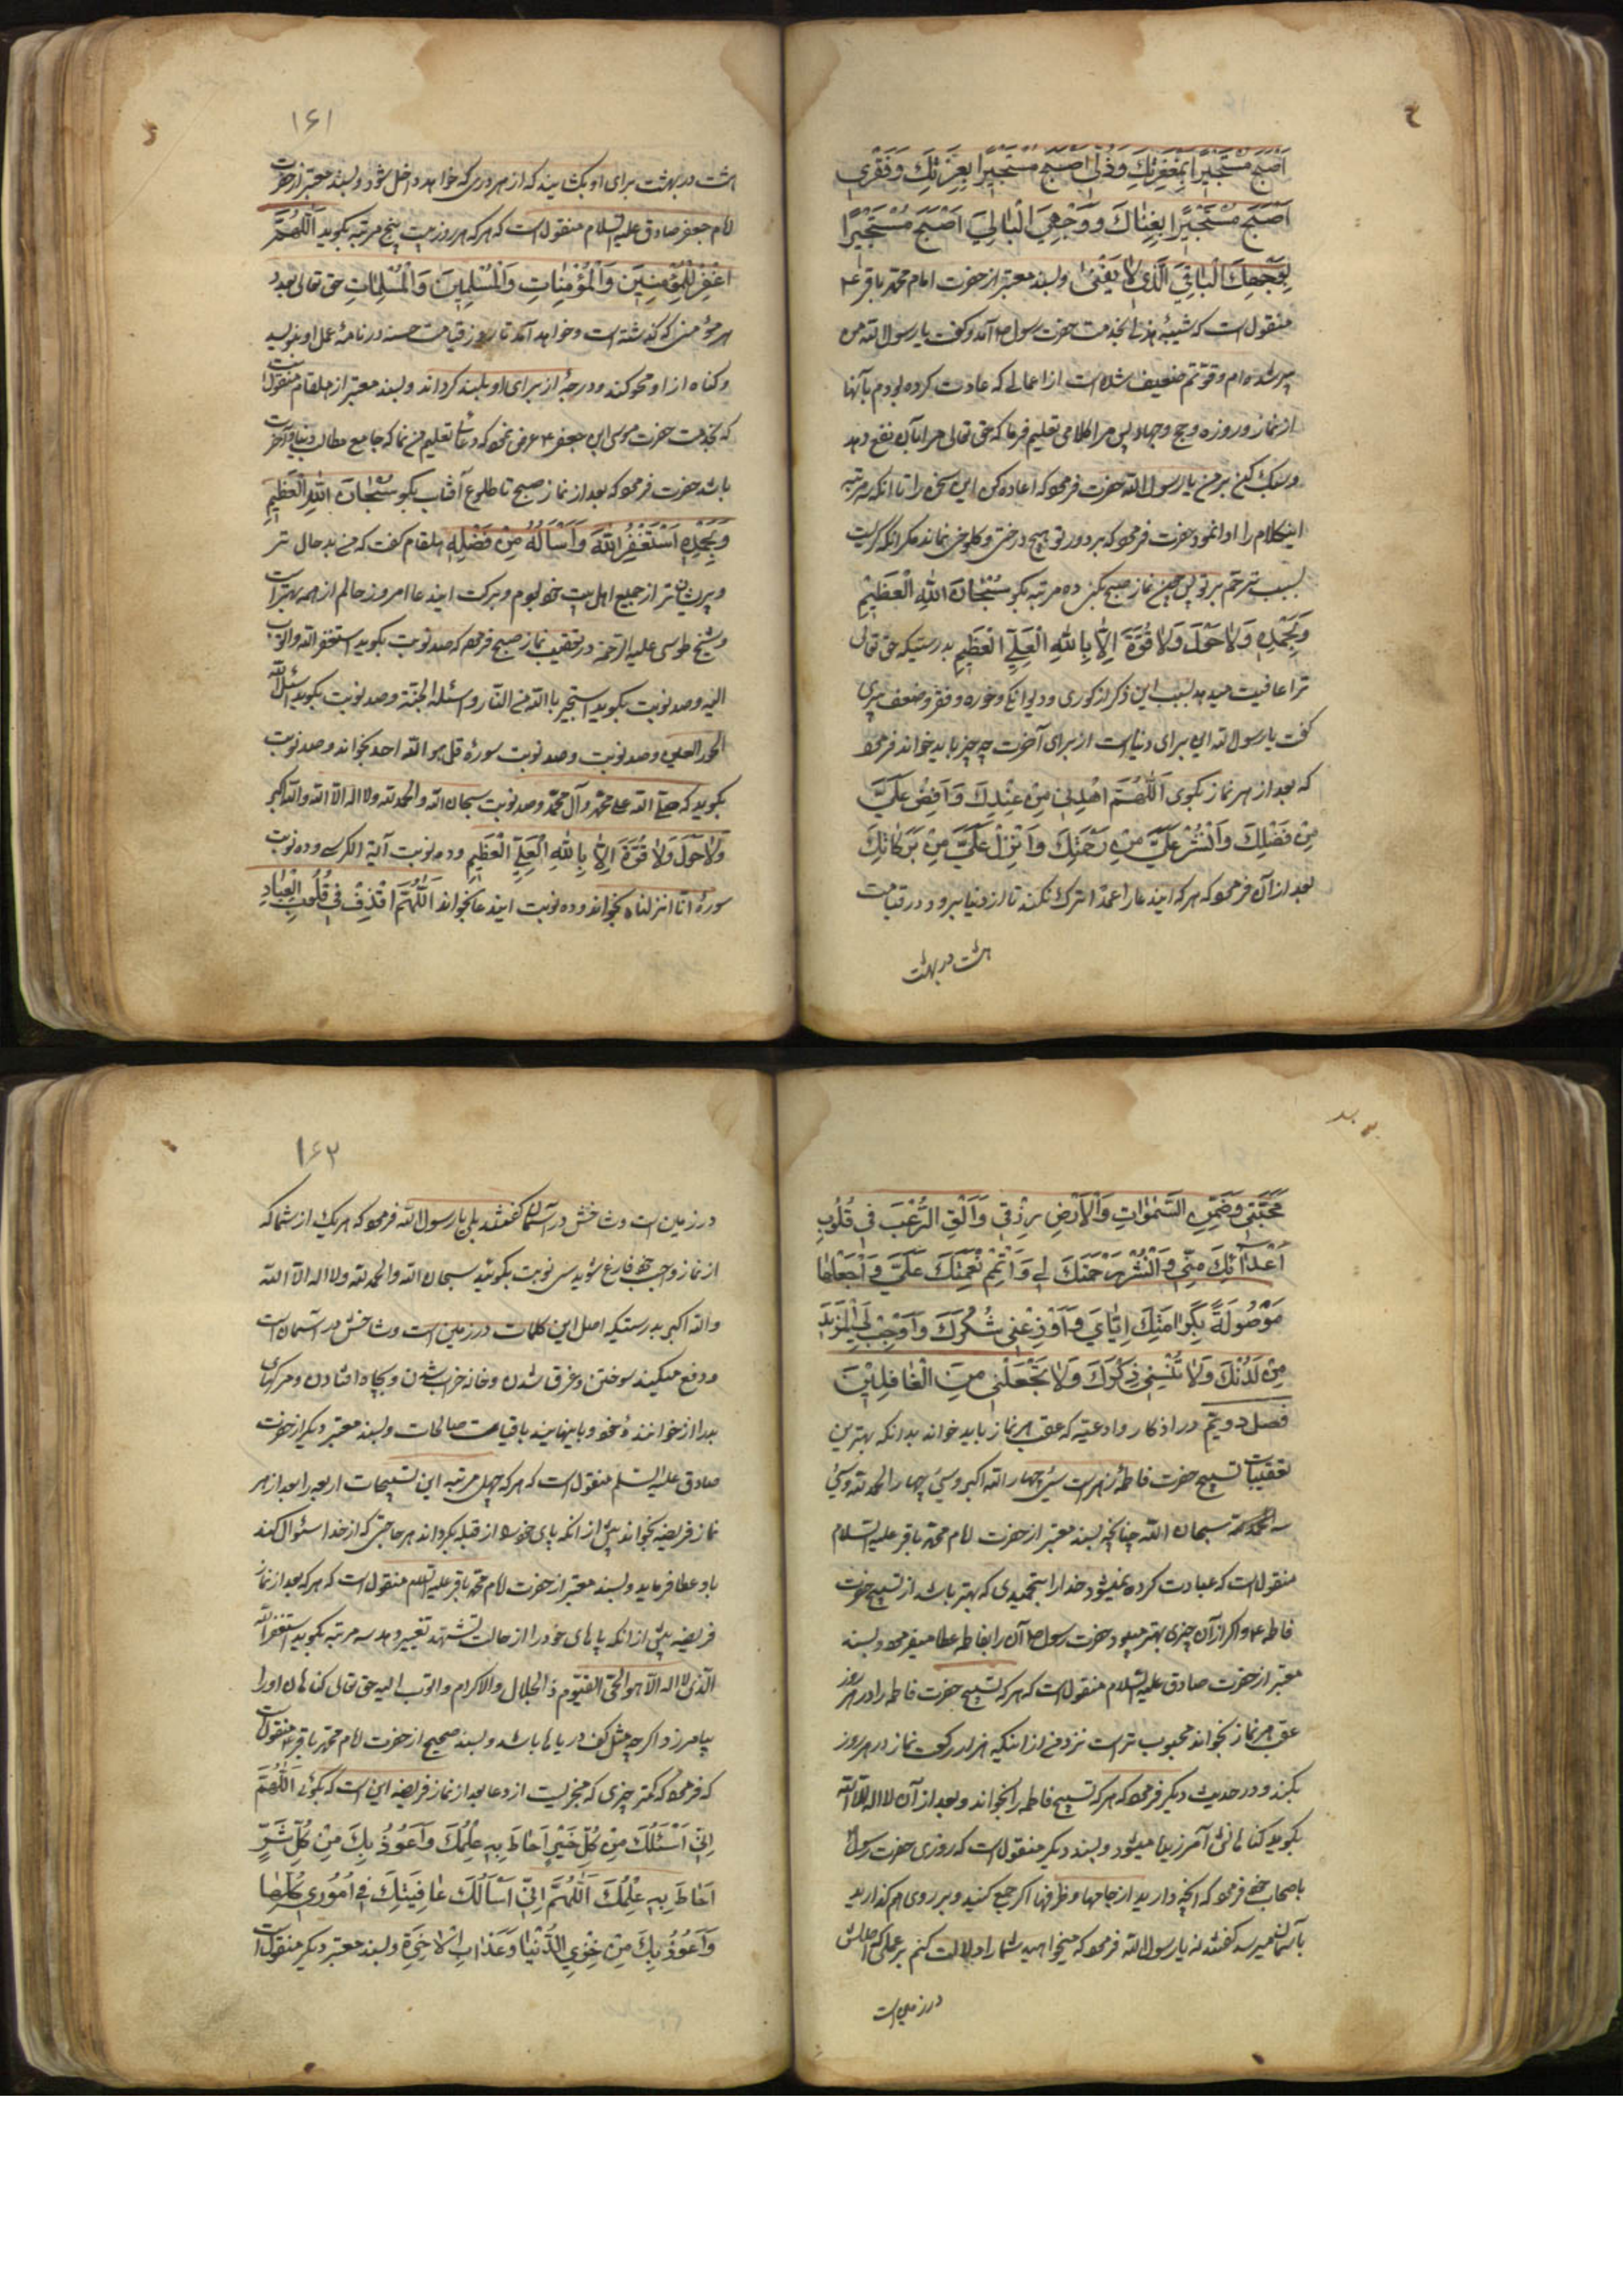 اَصْبَحَ مُسْتَجِيرًا بِمَغْفِرَتِكَ وَذُلّي اَصْبَحَ مُسْتَجِيرًا بِعِزَّتِكَ وَفَقْري
اَصْبَحَ مُسْتَجِيرًا بِغِنٰاكَ وَوَجْهِيَ الْبٰالِيَ اَصْبَحَ مُسْتَجِيرًا
بِوَجْهِكَ الْبٰاقِيَ الَّذي لٰا يَفْنىٰ وبسند معتبر از حضرت امام محمد باقر ع
منقول است که شیبهٔ هذلی بخدمت حضرت رسول ص آمد و کفت یا رسول الله من
پیر شده‌ام و قوّتم ضعیف شده است از اعمالی که عادت کرده بودم بآنها
از نماز و روزه و حج و جهاد پس مرا کلامی تعلیم فرما که حق تعالی مرا بآن نفع دهد
و سبک کن بر من یا رسول الله حضرت فرمود که اعاده کن این سخن را تا آنکه سه مرتبه
اینکلام را ادا نمود حضرت فرمود که بر دور تو هیچ درختی و کلوخی نماند مکر آنکه کریست
بسبب ترحم بر تو پس چون نماز صبح بکنی ده مرتبه بکو سُبْحٰانَ اللهِ الْعَظيمِ
وَبِحَمْدِهِ وَلٰا حَوْلَ وَلٰا قُوَّةَ اِلّٰا بِاللهِ الْعَلِيِّ الْعَظيمِ بدرستیکه حق تعالی
ترا عافیت میدهد بسبب این ذکر از کوری و دیوانکی و خوره و فقر و ضعف پیری
کفت یا رسول الله این برای دنیاست از برای آخرت چه چیز باید خواند فرمود
که بعد از هر نماز بکوی اَللّٰهُمَّ اهْدِني مِنْ عِنْدِكَ وَاَفِضْ عَلَيَّ
مِنْ فَضْلِكَ وَانْشُرْ عَلَيَّ مِنْ رَحْمَتِكَ وَاَنْزِلْ عَلَيَّ مِنْ بَرَكٰاتِكَ
بعد از آن فرمود که هر که ایندعا را عمدا ترک نکند تا از دنیا برود در قیامت
هشت در بهشت
۱۶۱
هشت در بهشت برای او بکشایند که از هر دری که خواهد داخل شود و بسند معتبر از حضرت
امام جعفر صادق علیه السلام منقول است که هر که هر روز بیست پنج مرتبه بکوید اَللّٰهُمَّ
اغْفِرْ لِلْمُؤْمِنينَ وَالْمُؤْمِنٰاتِ وَالْمُسْلِمينَ وَالْمُسْلِمٰاتِ حق تعالی بعدد
هر مؤمنی که کذشته است و خواهد آمد تا روز قیامت حسنه در نامهٔ عمل او بنویسد
و کناه از او محو کند و درجهٔ از برای او بلند کرداند و بسند معتبر از هلقام منقولست
که بخدمت حضرت موسی ابن جعفر ع عرض نمود که دعائی تعلیم من نما که جامع مطالب دنیا و آخرت
باشد حضرت فرمود که بعد از نماز صبح تا طلوع آفتاب بکو سُبْحٰانَ اللهِ الْعَظيمِ
وَبِحَمْدِهِ اَسْتَغْفِرُ اللهَ وَاَسْاَلُهُ مِنْ فَضْلِهِ هلقام کفت که من بد حال تر
و پریشان تر از جمیع اهل بیت خود بودم و ببرکت ایندعا امروز حالم از همه بهتر است
و شیخ طوسی علیه الرحمة در تعقیب نماز صبح فرموده که صد نوبت بکوید استغفر الله واتوب
الیه و صد نوبت بکوید استجیر بالله من النار واسئله الجنة و صد نوبت بکوید اسئل الله
الحور العین و صد نوبت و صد نوبت سورهٔ قل هو الله احد بخواند و صد نوبت
بکوید که صلی الله علی محمد وآل محمد و صد نوبت سبحان الله والحمد لله ولا اله الا الله والله اکبر
وَلٰا حَوْلَ وَلٰا قُوَّةَ اِلّٰا بِاللهِ الْعَلِيِّ الْعَظيمِ و ده نوبت آیة الکرسی و ده نوبت
سورهٔ انا انزلناه بخواند و ده نوبت ایندعا بخواند اَللّٰهُمَّ اقْذِفْ في قُلُوبِ الْعِبٰادِ
مَحَبَّتي وَضَمِّنِ السَّمٰوٰاتِ وَالْاَرْضِ رِزْقي وَاَلْقِ الرُّعْبَ في قُلُوبِ
اَعْدٰائِكَ مِنّي وَانْشُرْ رَحْمَتَكَ لي وَاَتْمِمْ نِعْمَتَكَ عَلَيَّ وَاجْعَلْهٰا
مَوْصُولَةً بِكَرٰامَتِكَ اِيّٰايَ وَاَوْزِعْني شُكْرَكَ وَاَوْجِبْ لِيَ الْمَزيدَ
مِنْ لَدُنْكَ وَلٰا تُنْسِني ذِكْرَكَ وَلٰا تَجْعَلْني مِنَ الْغٰافِلينَ
فصل دویم در اذکار و ادعیه که عقب هر نماز باید خواند بدانکه بهترین
تعقیبات تسبیح حضرت فاطمه زهراست سی و چهار الله اکبر و سی
سبحان الله چنانچه بسند معتبر از حضرت امام محمد باقر علیه السلام
منقول است که عبادت کرده نمیشود خدا را بتحمیدی که بهتر باشد از تسبیح حضرت
فاطمه ع و اکر از آن چیزی بهتر میبود حضرت رسول ص آن را بفاطمه عطا میفرمود و بسند
معتبر از حضرت صادق علیه السلام منقول است که هر که تسبیح حضرت فاطمه را در هر روز
عقب هر نماز بخواند محبوب تر است نزد من از اینکه هزار رکعت نماز در هر روز
بکند و در حدیث دیکر فرمود که هر که تسبیح فاطمه را بخواند و بعد از آن لا اله الا الله
بکوید کناهانش آمرزیده میشود و بسند دیکر منقول است که روزی حضرت رسول
باصحاب خود فرمود که آنچه دارید از جامها و ظرفها اکر جمع کنید و بر روی هم کذارید
بآسمان میرسد کفتند نه یا رسول الله فرمود که میخواهید شما را دلالت کنم بر عملی که اصلش
در زمین است
۱۶۲
در زمین است و شاخش در آسمان کفتند بلی یا رسول الله فرمود که هر یک از شما که
از نماز واجب خود فارغ شوید سی نوبت بکوئید سبحان الله والحمد لله ولا اله الا الله
والله اکبر بدرستیکه اصل این کلمات در زمین است و شاخش در آسمان است
و دفع میکنند سوختن و غرق شدن و خانه خراب شدن و بچاه افتادن و مرکهای
بد را از خوانندهٔ خود و باینهایند باقیات صالحات و بسند معتبر دیکر از حضرت
صادق علیه السلم منقول است که هر که چهل مرتبه این تسبیحات اربعه را بعد از هر
نماز فریضه بخواند پیش از آنکه پای خود را از قبله بکرداند هر حاجتی که از خدا سئوال کند
باو عطا فرماید و بسند معتبر از حضرت امام محمد باقر علیه السلم منقول است که هر که بعد از نماز
فریضه پیش از آنکه پاهای خود را از حالت تشهد تغییر دهد سه مرتبه بکوید استغفر الله
الذی لا اله الا هو الحی القیوم ذا الجلال والاکرام واتوب الیه حق تعالی کناهان او را
بیامرزد اکرچه مثل کف دریاها باشد و بسند صحیح از حضرت امام محمد باقر ع منقولست
که فرمود که کمتر چیزی که مجزیست از دعا بعد از نماز فریضه این است که بکوئی اَللّٰهُمَّ
اِنّي اَسْئَلُكَ مِنْ كُلِّ خَيْرٍ اَحٰاطَ بِهِ عِلْمُكَ وَاَعُوذُ بِكَ مِنْ كُلِّ شَرٍّ
اَحٰاطَ بِهِ عِلْمُكَ اَللّٰهُمَّ اِنّي اَسْاَلُكَ عٰافِيَتَكَ في اُمُوري كُلِّهٰا
وَاَعُوذُ بِكَ مِنْ خِزْيِ الدُّنْيٰا وَعَذٰابِ الْاٰخِرَةِ و بسند معتبر دیکر منقولست